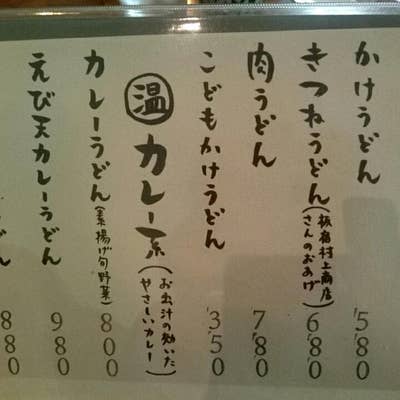 かけうどん
580
きつねうどん(板宿村上商店さんのおあげ)
680
肉うどん
780
こどもかけうどん
350
温 カレー系(お出汁の効いたやさしいカレー)
カレーうどん(素揚げ旬野菜)
800
えび天カレーうどん
980
うどん
880